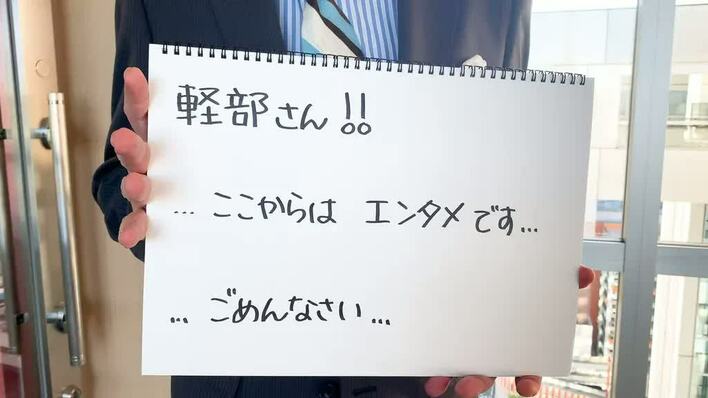 軽部さん!!
… ここからは エンタメです…
… ごめんなさい…